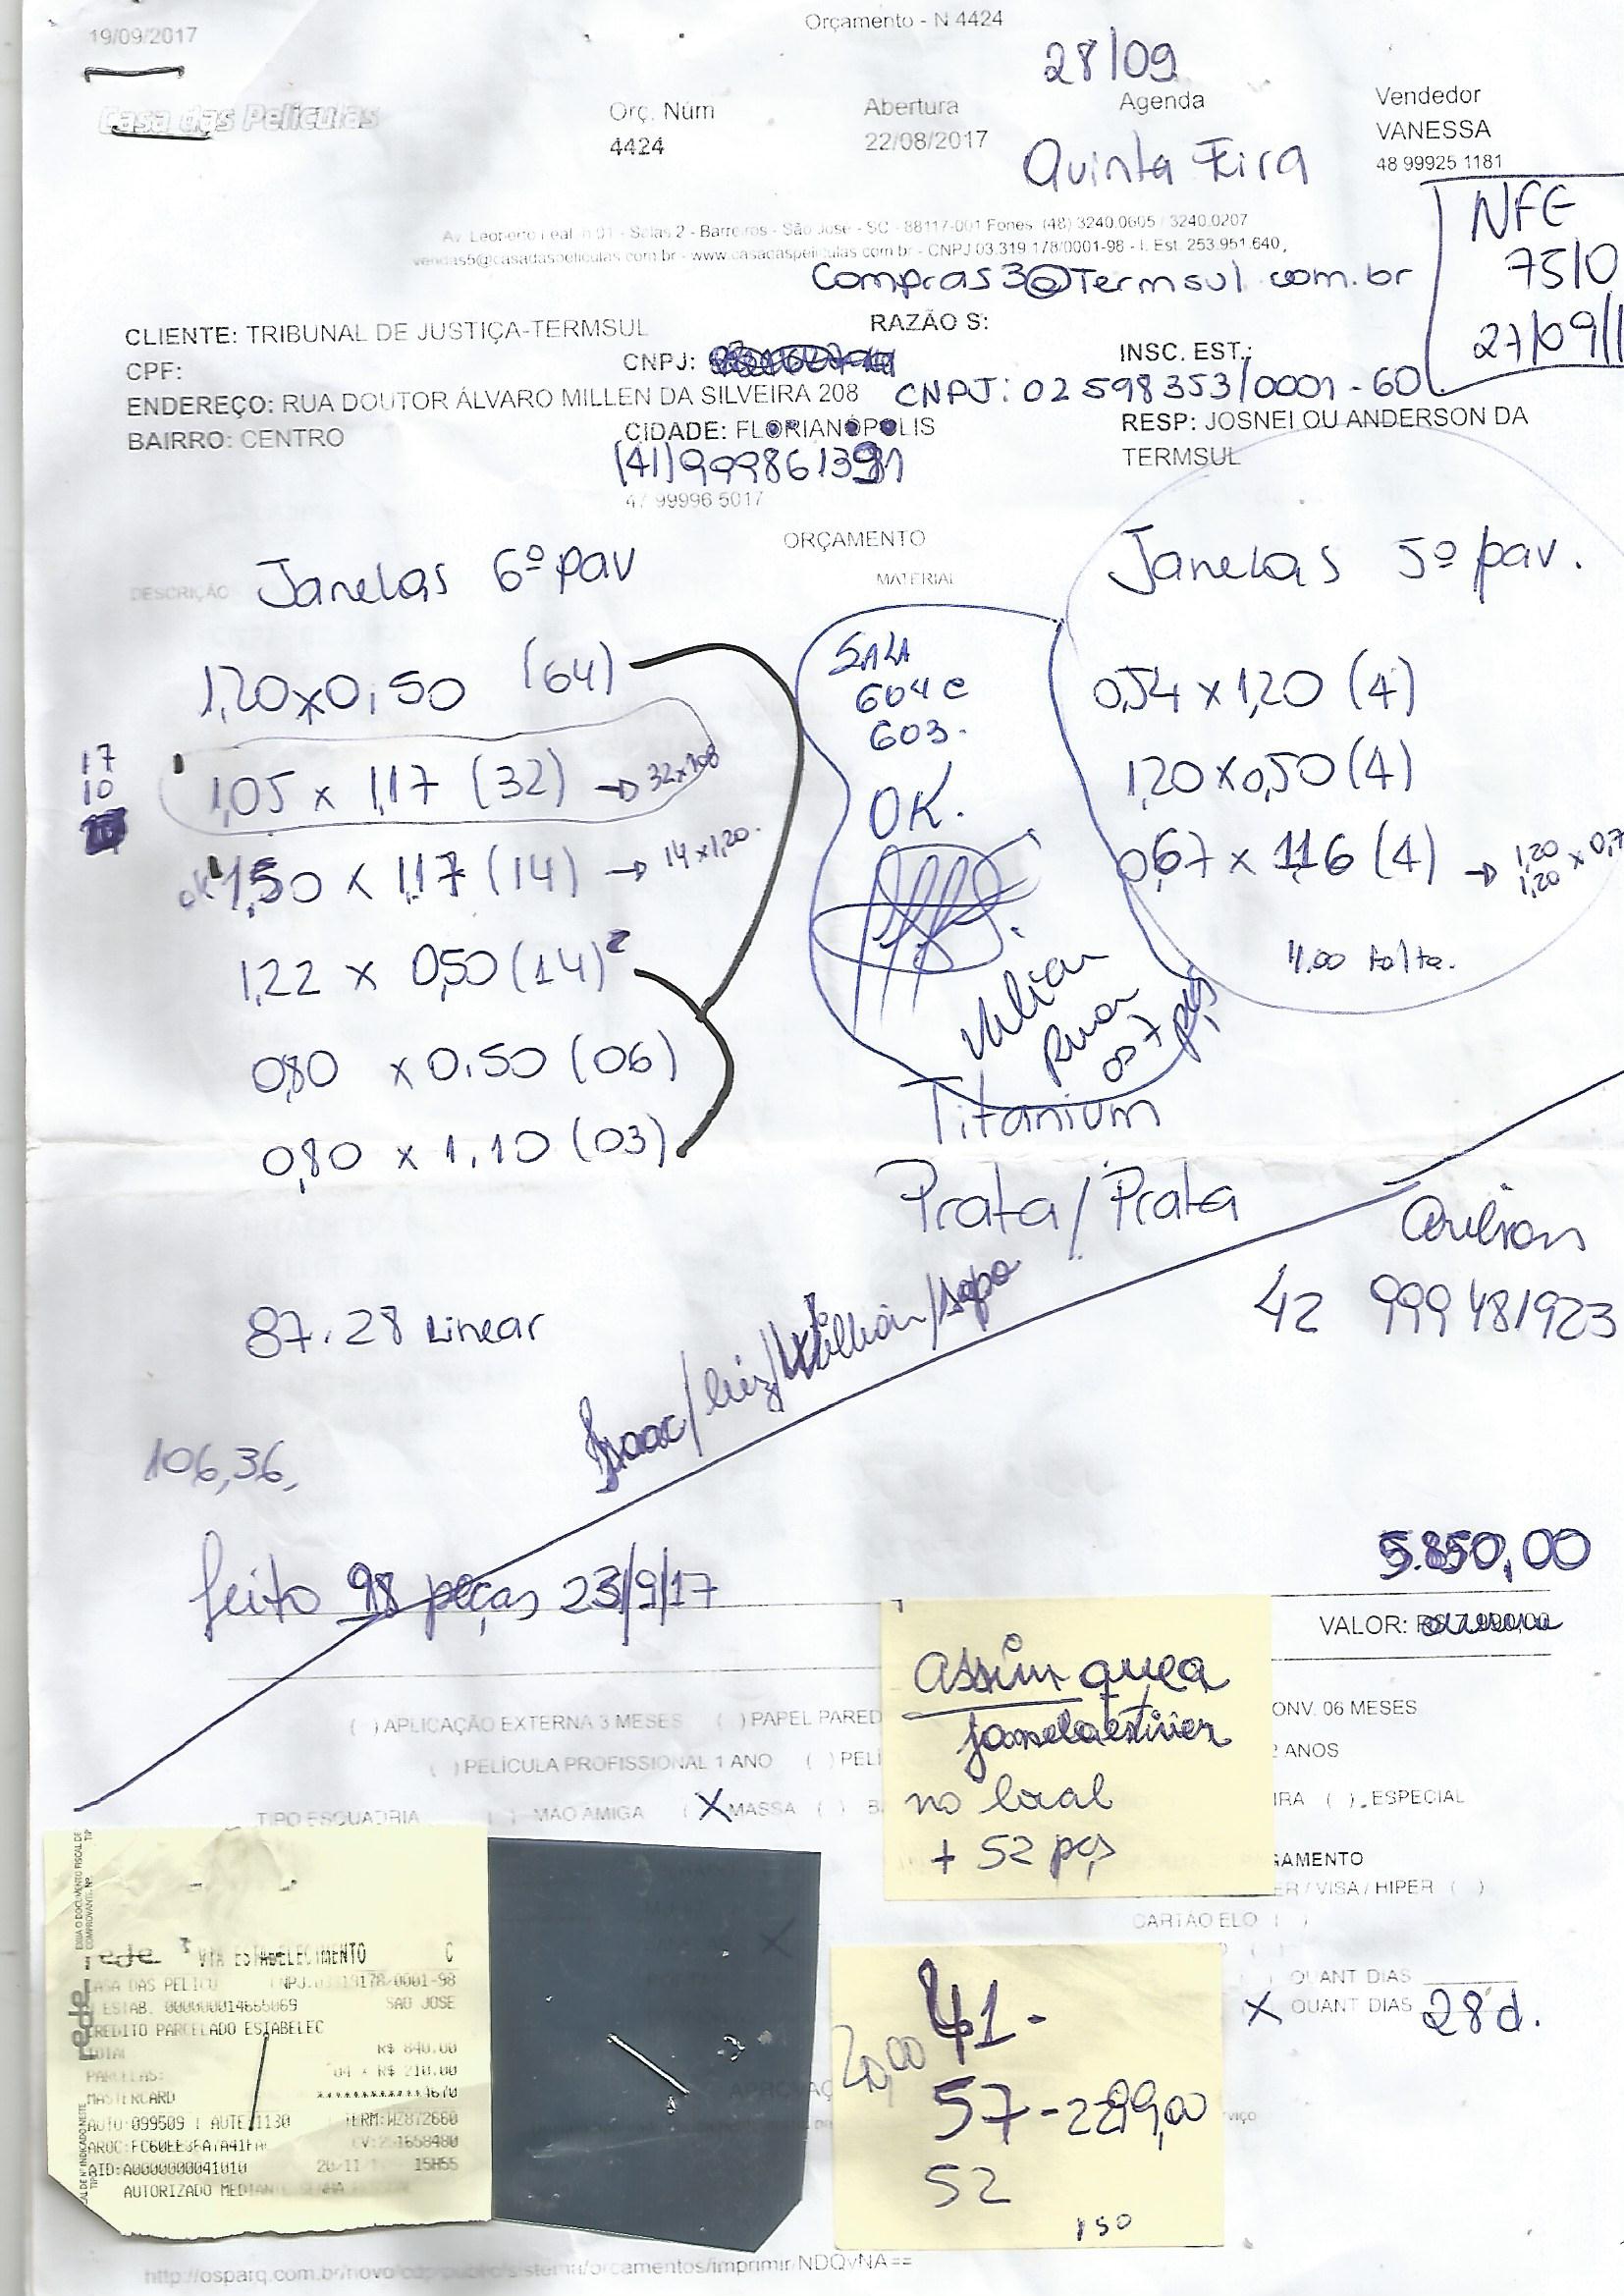 19/09/2017
Orçamento - N 4424
28/09
Casa das Películas
Orç. Núm
4424
Abertura
22/08/2017
Agenda
Quinta Feira
Vendedor
VANESSA
48 99925 1181
NFE
7510
27/09/1
Av. Leoberto Leal, n 01 - Salas 2 - Barreiros - São José - SC - 88117-001 Fones: (48) 3240.0605 / 3240.0207
vendas5@casadaspeliculas.com.br - www.casadaspeliculas.com.br - CNPJ 03.319.178/0001-98 - I. Est. 253.951.640,
Compras3@Termsul.com.br
CLIENTE: TRIBUNAL DE JUSTIÇA-TERMSUL
RAZÃO S:
CPF:
CNPJ:
INSC. EST.:
ENDEREÇO: RUA DOUTOR ÁLVARO MILLEN DA SILVEIRA 208
CNPJ: 02598353/0001-60
BAIRRO: CENTRO
CIDADE: FLORIANÓPOLIS
RESP: JOSNEI OU ANDERSON DA
TERMSUL
(41)999861391
47 99996 5017
ORÇAMENTO
DESCRIÇÃO
MATERIAL
Janelas 6º pav
1,20x0,50 (64)
17
10
1,05 x 1,17 (32) → 32x108
ok 1,50 x 1,17 (14) → 14x1,20.
1,22 x 0,50 (14)
0,80 x 0,50 (06)
0,80 x 1,10 (03)
SALA
604 e
603.
OK.
07 pçs
Janelas 5º pav.
0,54 x 1,20 (4)
1,20 x 0,50 (4)
0,67 x 1,16 (4) → 1,20 x 0,7
1,20
11,00 falta.
Titanium
Prata/Prata
42 999481923
87.28 Linear
Isaac/Luiz/Willian/Sapo
106,36,
feito 98 peças 23/9/17
5.850,00
VALOR:
( ) APLICAÇÃO EXTERNA 3 MESES ( ) PAPEL PARED
ONV. 06 MESES
( ) PELÍCULA PROFISSIONAL 1 ANO ( ) PELÍ
2 ANOS
TIPO ESQUADRIA ( ) MÃO AMIGA (X MASSA ( ) B
IRA ( ) ESPECIAL
Assim que a
janela estiver
no local
+ 52 pçs
GAMENTO
ER / VISA / HIPER ( )
CARTÃO ELO ( )
QUANT DIAS
X QUANT DIAS 28d.
rede
VIA ESTABELECIMENTO C
CASA DAS PELICU CNPJ:03319178/0001-98
ESTAB. 000000014665069 SAO JOSE
CREDITO PARCELADO ESTABELEC
TOTAL R$ 840,00
PARCELAS: 04 x R$ 210,00
MASTERCARD
AUTO:099509 TERM:WZ872660
AID:A0000000041010 20/11 15H55
AUTORIZADO MEDIANTE SENHA
41-
57-2299,00
52
150
http://osparq.com.br/novo
/orcamentos/imprimir/NDQyNA==